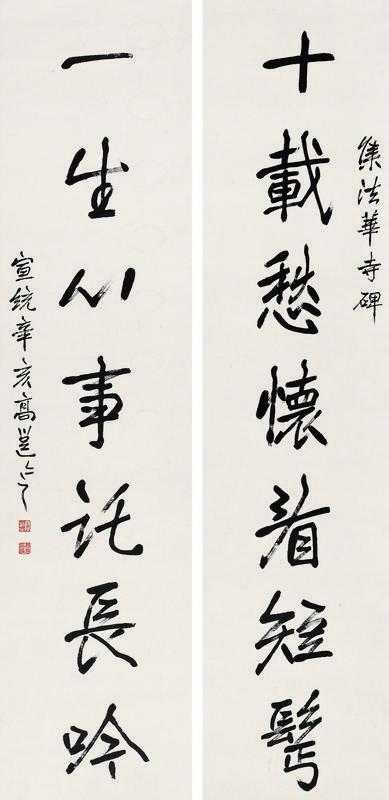 集法華寺碑
十載愁懷看短鬢
一生心事託長吟
宣統辛亥高邕之